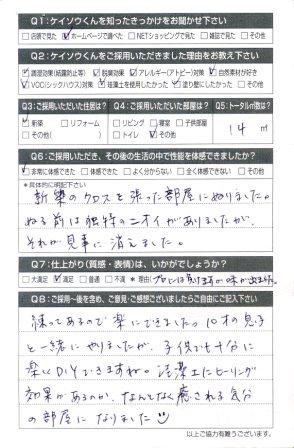 Q1：ケイソウくんを知ったきっかけをお聞かせ下さい
□店頭で見た ☑ホームページで調べた □NETショッピングで見た □雑誌で見た □その他
Q2：ケイソウくんをご採用いただきました理由をお教え下さい
☑調湿効果(結露防止等) ☑脱臭効果 ☑アレルギー(アトピー)対策 ☑自然素材が好き
☑VOC(シックハウス)対策 ☑珪藻土を使用したかった ☑塗り壁にしたかった □その他
Q3：ご採用いただいた住居は？ Q4：ご採用いただいた部屋は？ Q5：トータル㎡数は？
☑新築 □リフォーム □リビング □寝室 □子供部屋
□その他( ) □トイレ ☑その他
14 ㎡
Q6：ご採用いただき、その後の生活の中で性能を体感できましたか？
☑非常に体感できた □体感できた □よく分からない □全く体感できない □その他
*具体的に明記下さい
新築のクロスを張った部屋にぬりました。
ぬる前は独特のニオイがありましたが、
それが見事に消えました。
Q7：仕上がり(質感・表情)は、いかがでしょうか？
□大満足 ☑満足 □普通 □不満 *理由( プロには負けますが味が出ました。
Q8：ご採用〜後を含め、ご意見・ご感想ございましたらご自由にご記入下さい
練ってあるので楽にできました。10才の息子
と一緒にやりましたが、子供でも十分に
楽しくDIYできますね。珪藻土にヒーリング
効果があるのか、なんとなく癒される気分
の部屋になりました
以上ご協力有難うございます。